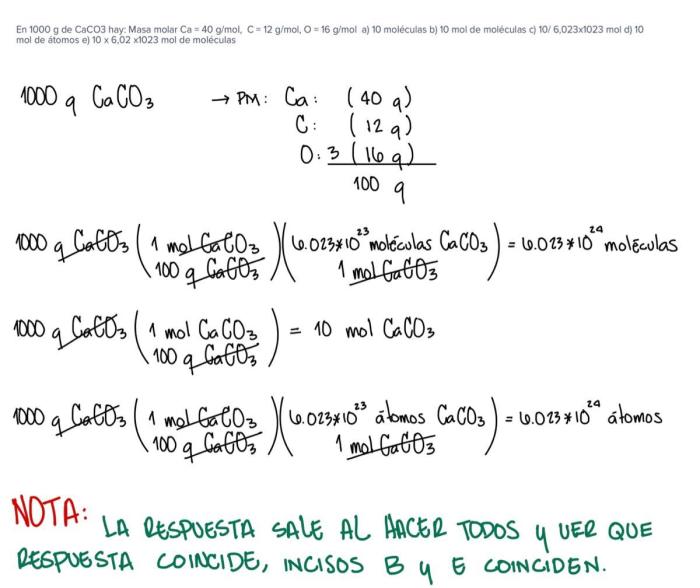 En 1000 g de CaCO3 hay: Masa molar Ca = 40 g/mol, C = 12 g/mol, O = 16 g/mol a) 10 moléculas b) 10 mol de moléculas c) 10/ 6,023x1023 mol d) 10
mol de átomos e) 10 x 6,02 x1023 mol de moléculas
1000 g CaCO₃ → PM: Ca: (40 g)
C: (12 g)
O: 3 (16 g)
100 g
1000 g CaCO₃ (1 mol CaCO₃ / 100 g CaCO₃)(6.023*10²³ moléculas CaCO₃ / 1 mol CaCO₃) = 6.023*10²⁴ moléculas
1000 g CaCO₃ (1 mol CaCO₃ / 100 g CaCO₃) = 10 mol CaCO₃
1000 g CaCO₃ (1 mol CaCO₃ / 100 g CaCO₃)(6.023*10²³ átomos CaCO₃ / 1 mol CaCO₃) = 6.023*10²⁴ átomos
NOTA: LA RESPUESTA SALE AL HACER TODOS y VER QUE
RESPUESTA COINCIDE, INCISOS B y E COINCIDEN.